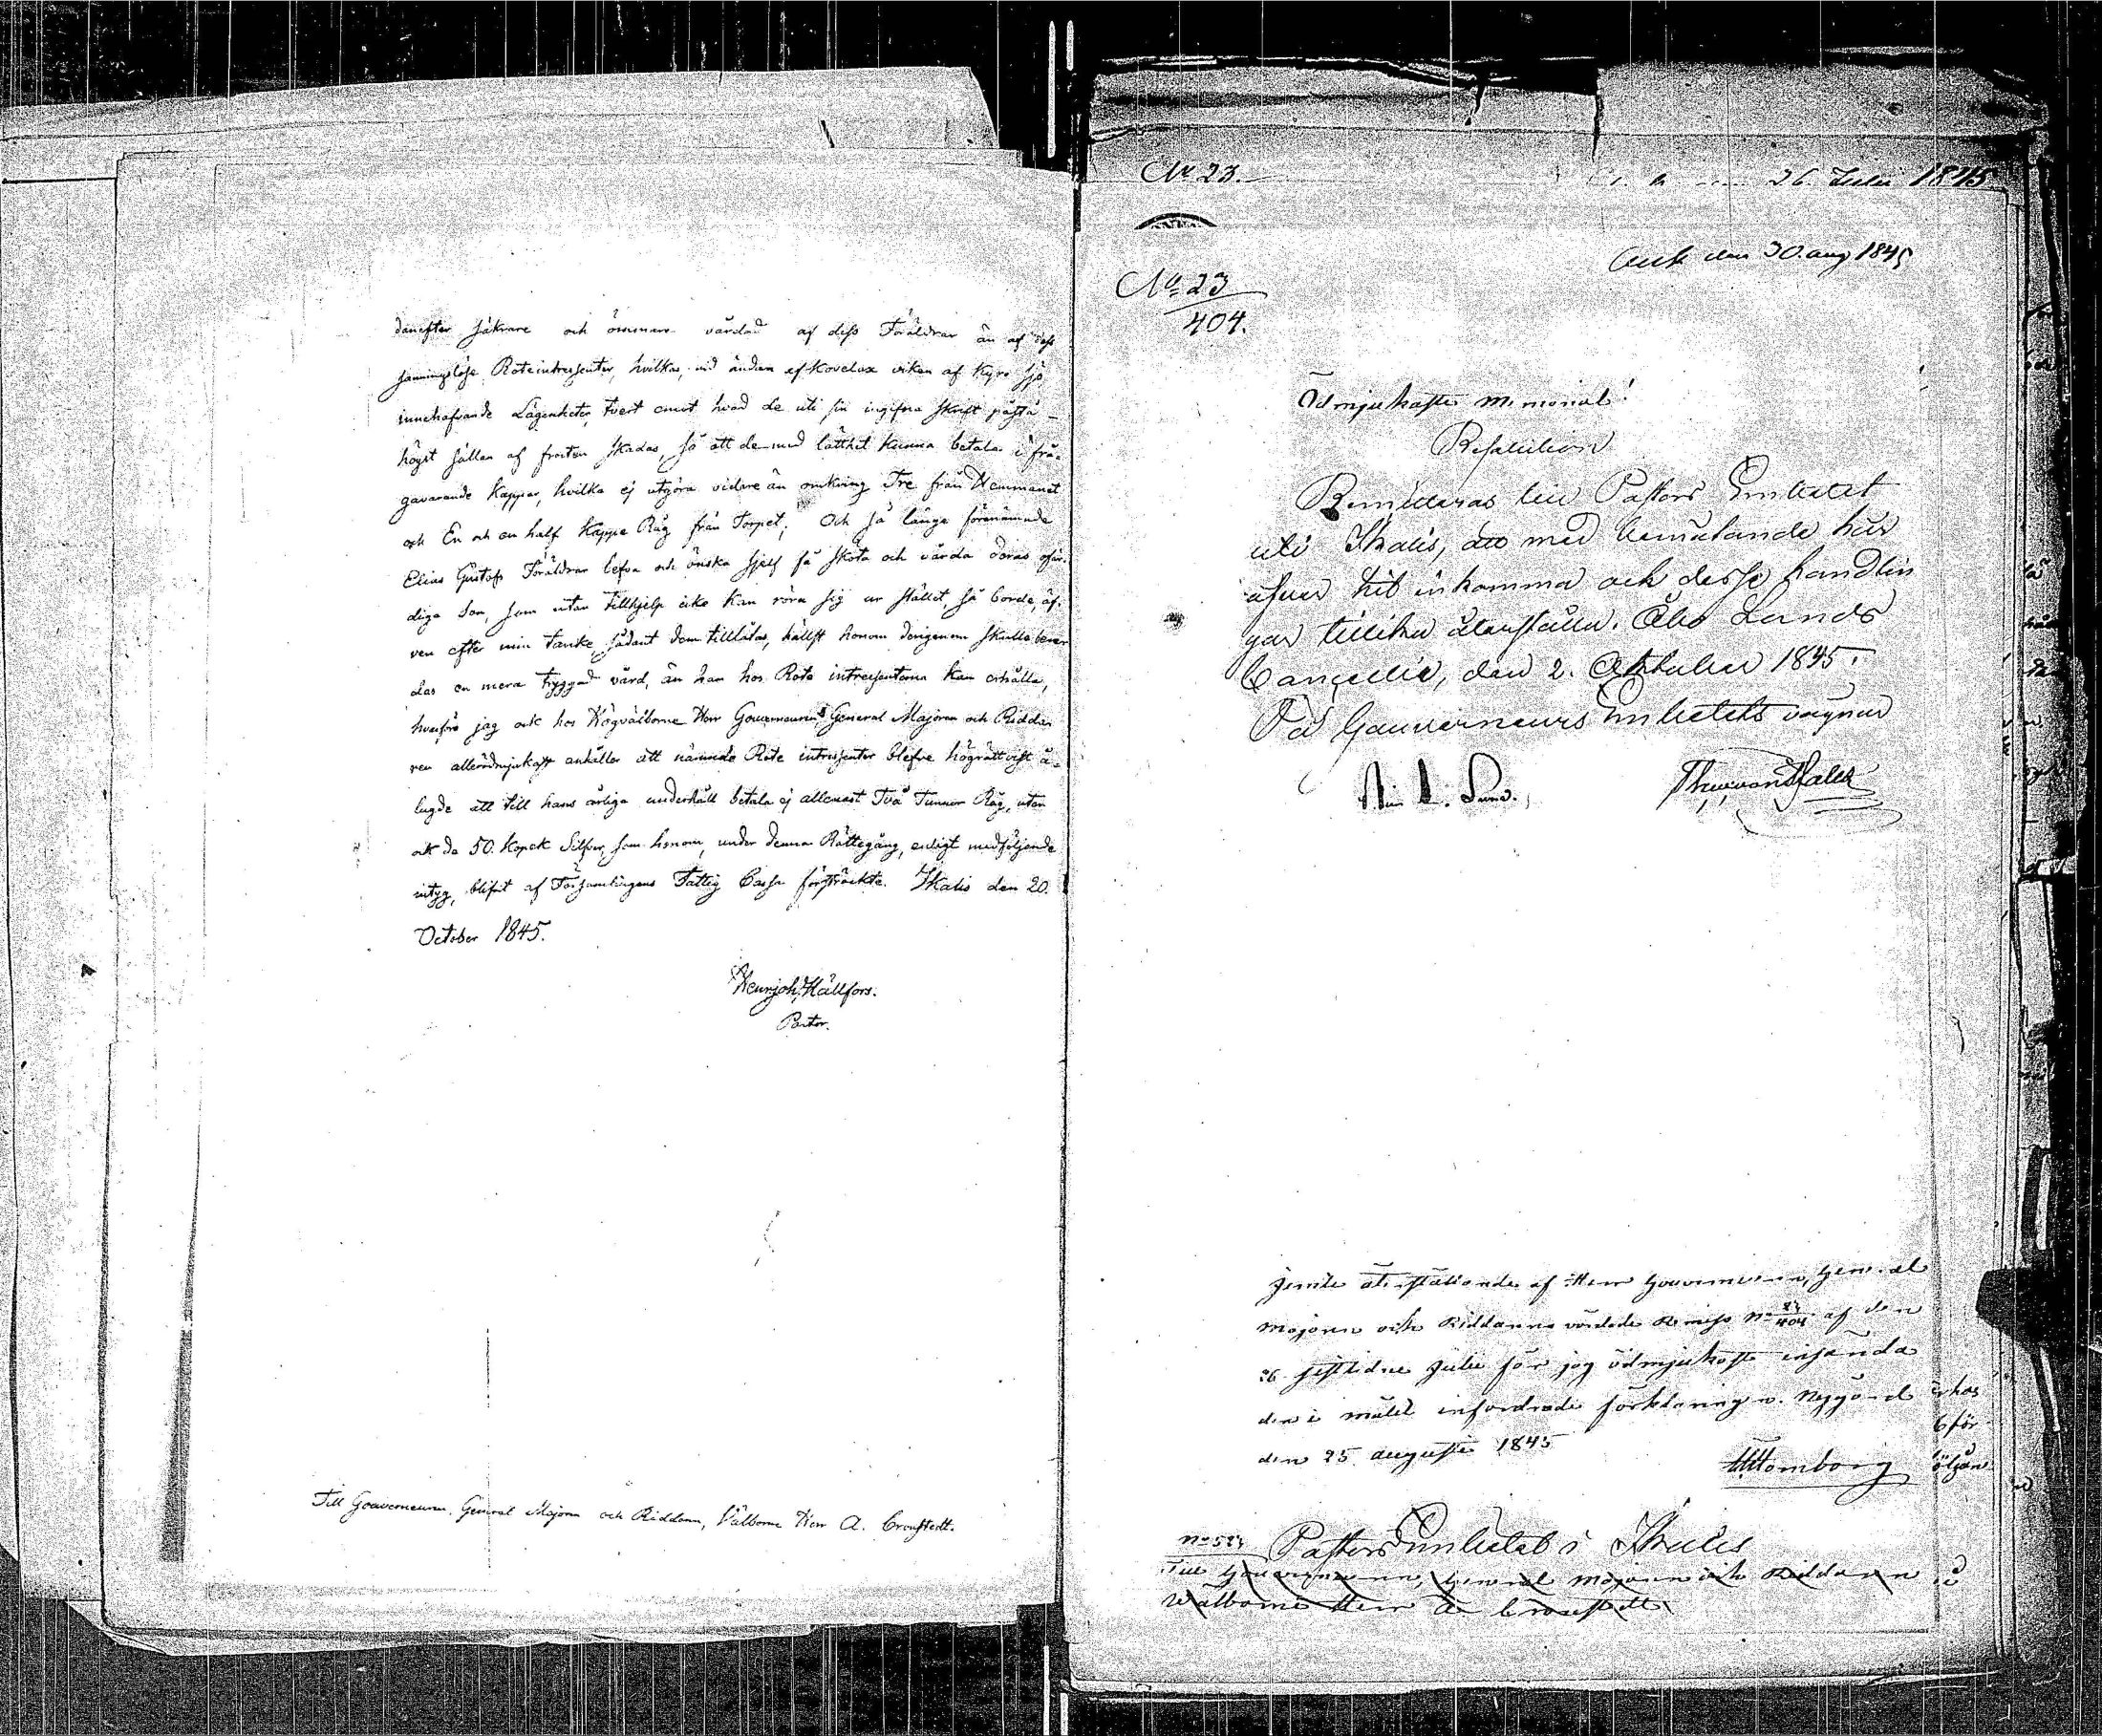 danefter säkrare och ömmare vårdad af dess Föräldrar än af dess
sanningslöse Roteintressenter, hvilkas, vid ändan af Kovelax viken af Kyro Sjö
innehafvande Lägenheter, tvert emot hvad de uti sin ingifna Skrift påstå
högst sällan af frosten skadas, så att de med lätthet kunna betala i frå-
gavarande Kappar, hvilka ej utgöra vidare än omkring Tre från Hemmanet
och En och en half Kappe Råg från Torpet; Och så länge förenämnde
Elias Gustafs Föräldrar lefva och önska sjelf få sköta och vårda deras ofär-
diga Son, som utan tillhjelp icke kan röra sig ur stället, så borde, äf-
ven efter min tanke, sådant dem tillåtas, hällst honom derigenom skulle bere-
das en mera tryggad vård, än han hos Rote intressenterna kan erhålla,
hvarföre jag ock hos Högvälborne Herr Gouverneuren, General Majoren och Ridda-
ren allerödmjukast anhåller att nämnde Rote intressenter blefve högrättvist å-
lagde att till hans årliga underhåll betala ej allenast Två Tunnor Råg, utan
ock de 50. Kopek Silfver, som honom, under denna Rättegång, enligt medföljande
intyg, blifvit af Församlingens Fattig Cassa försträckte. Ikalis den 20.
October 1845.
Henr Joh. Hällfors.
Pastor.
Till Gouverneuren, General Majoren och Riddaren, Välborne Herr A. Cronstedt.
No 23.
26. Julii 1845
Ank den 30. aug 1845
No 23
404.
Ödmjukaste Memorial!
Resolution
Remitteras till Pastors Embetet
uti Ikalis, att med utlåtande här
öfver hit inkomma och desse handlin
gar tillika återställa. Åbo Lands
Cancellie, den 2. Oktober 1845.
På Gouverneurs Embetets vägnar
Jemte återställande af Herr Gouverneuren, General
Majoren och Riddarens vördade Remiss No 23/404 af den
26 sistledne Julii får jag ödmjukast insända
den i målet infordrade förklaringen. Nygård
den 25 Augusti 1845
No 523
Pastors Embetet i Ikalis
Till Gouverneuren, General Majoren och Riddaren
Wälborne Herr A Cronstedt